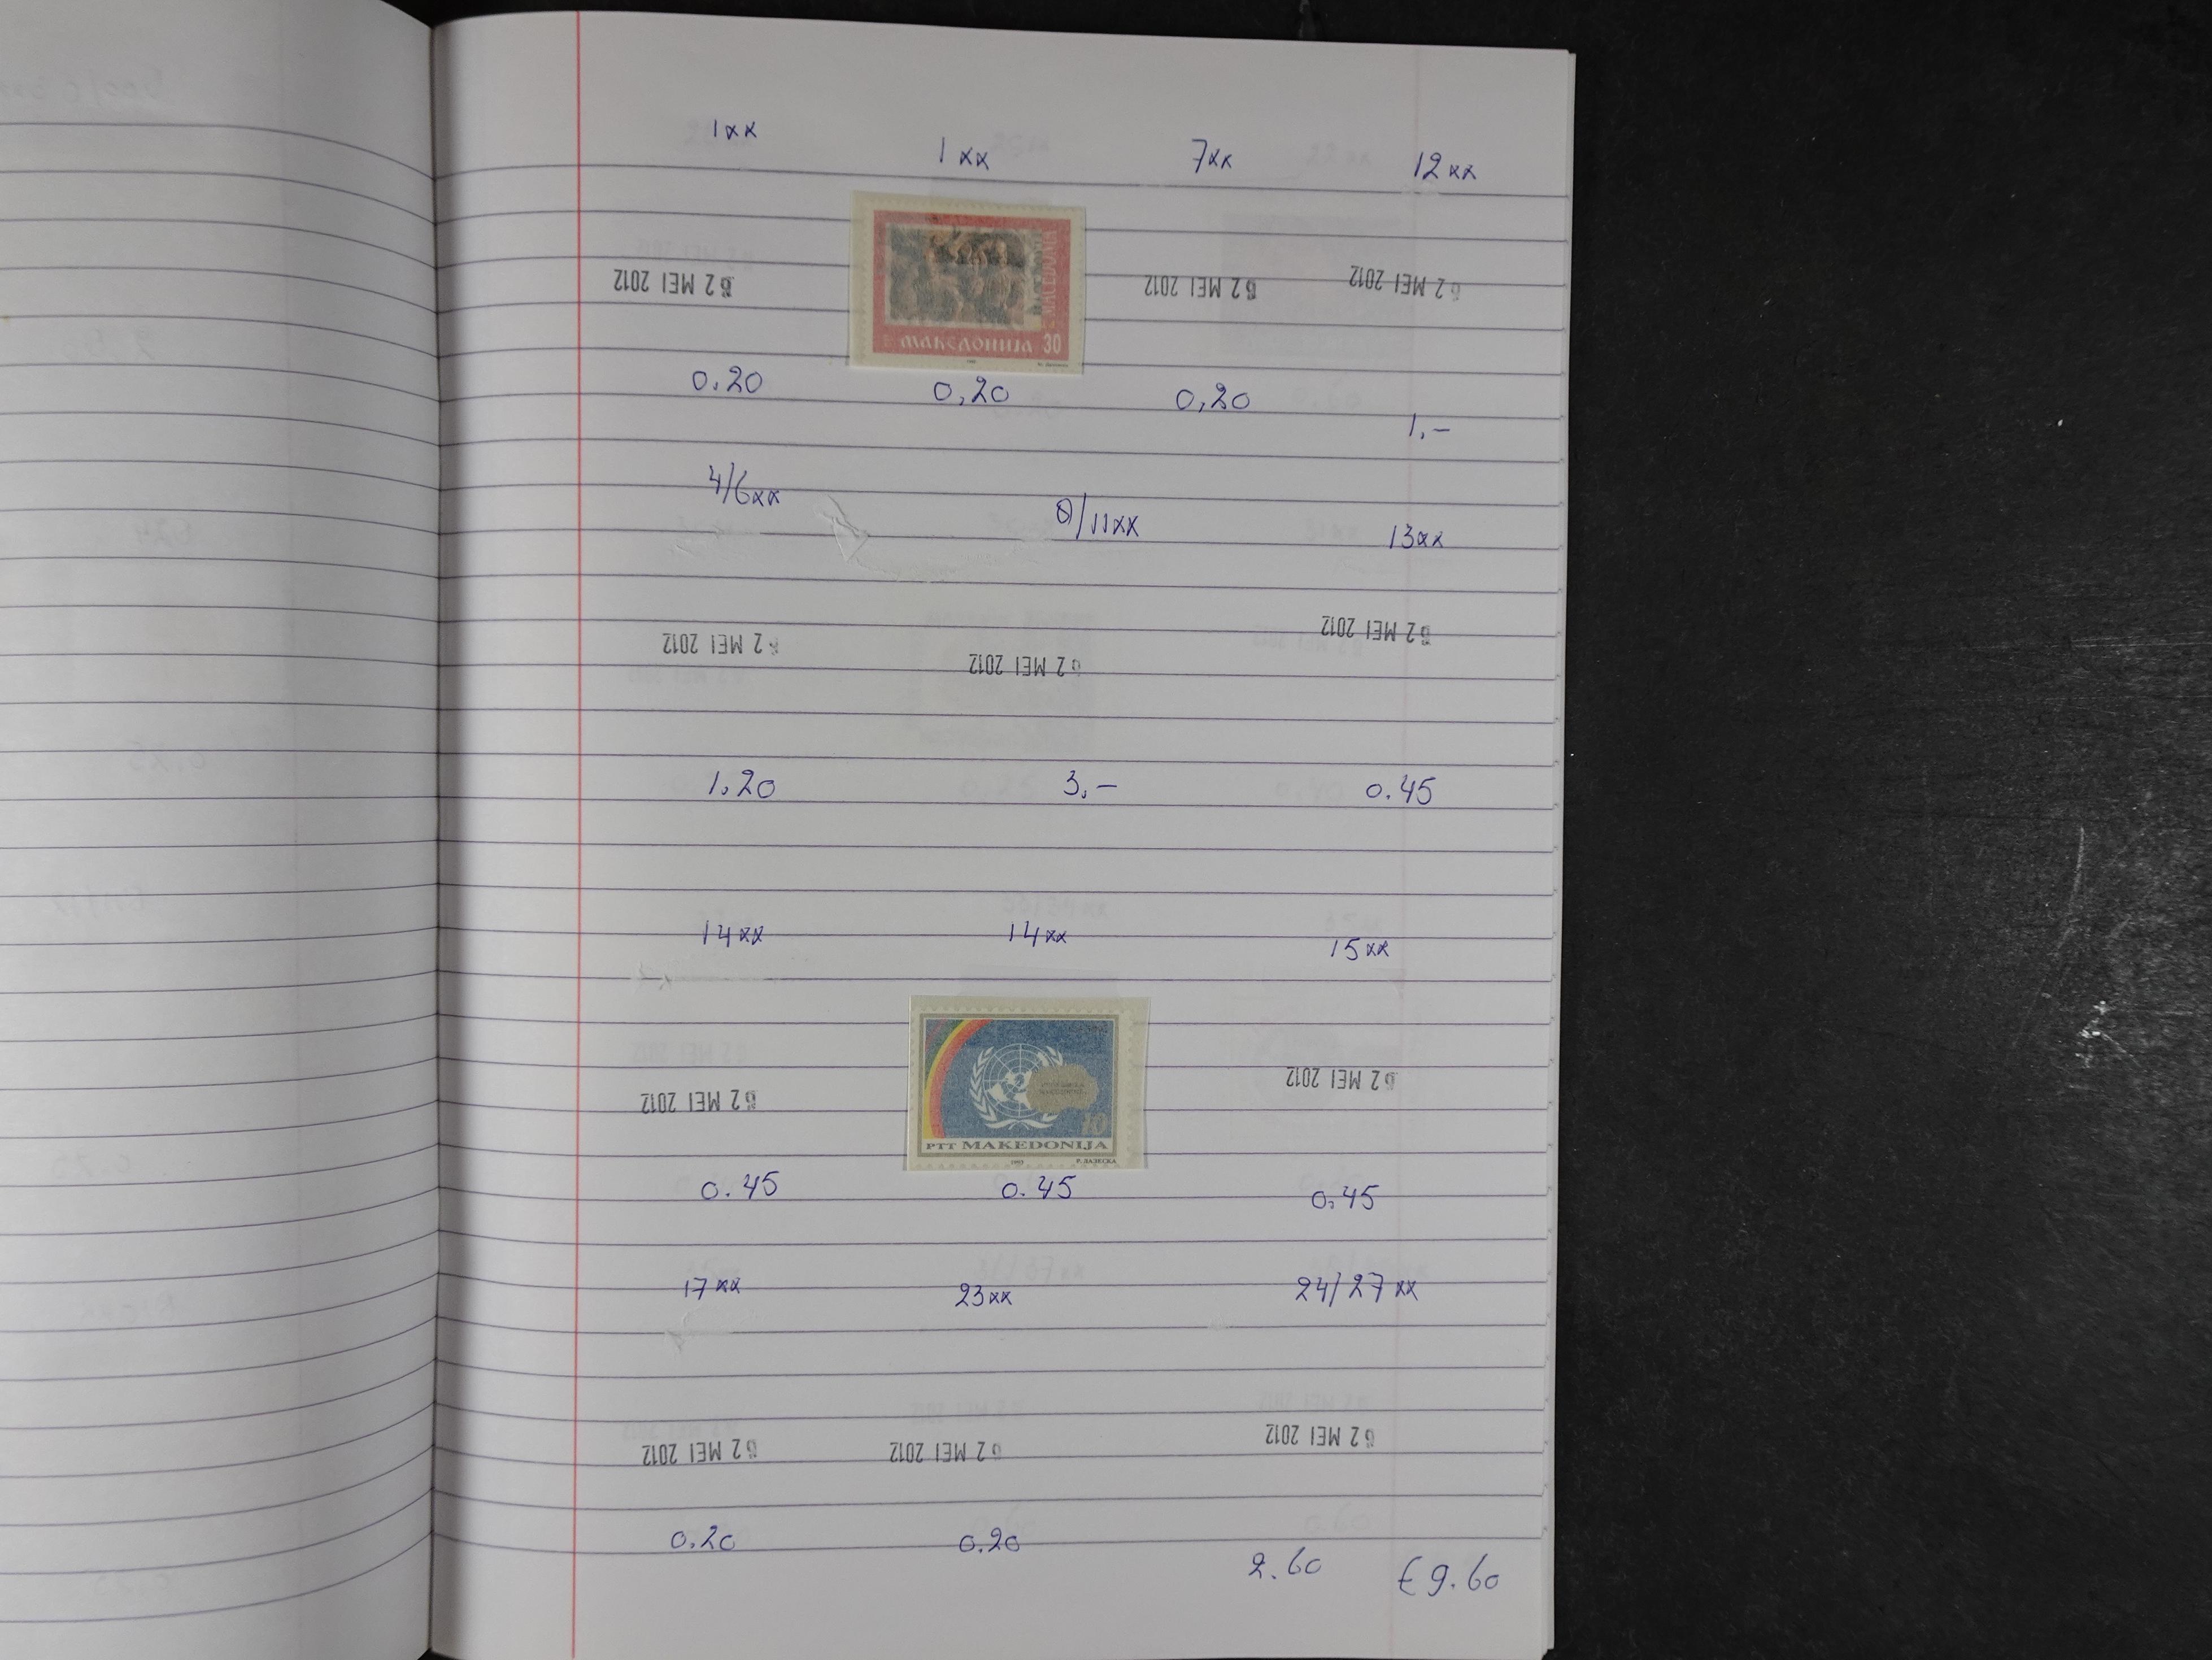 1xx 1xx 7xx 12xx
MACEDONIA
МАКЕДОНИЈА 30
2 MEI 2012 2 MEI 2012 2 MEI 2012
0.20 0,20 0,20 1,-
4/6xx 8/11xx 13xx
2 MEI 2012 2 MEI 2012 2 MEI 2012
1,20 3,- 0.45
14xx 14xx 15xx
10
PTT MAKEDONIJA
1993
2 MEI 2012 2 MEI 2012
0.45 0.45 0,45
17xx 23xx 24/27xx
2 MEI 2012 2 MEI 2012 2 MEI 2012
0.20 0.20 2.60 €9.60